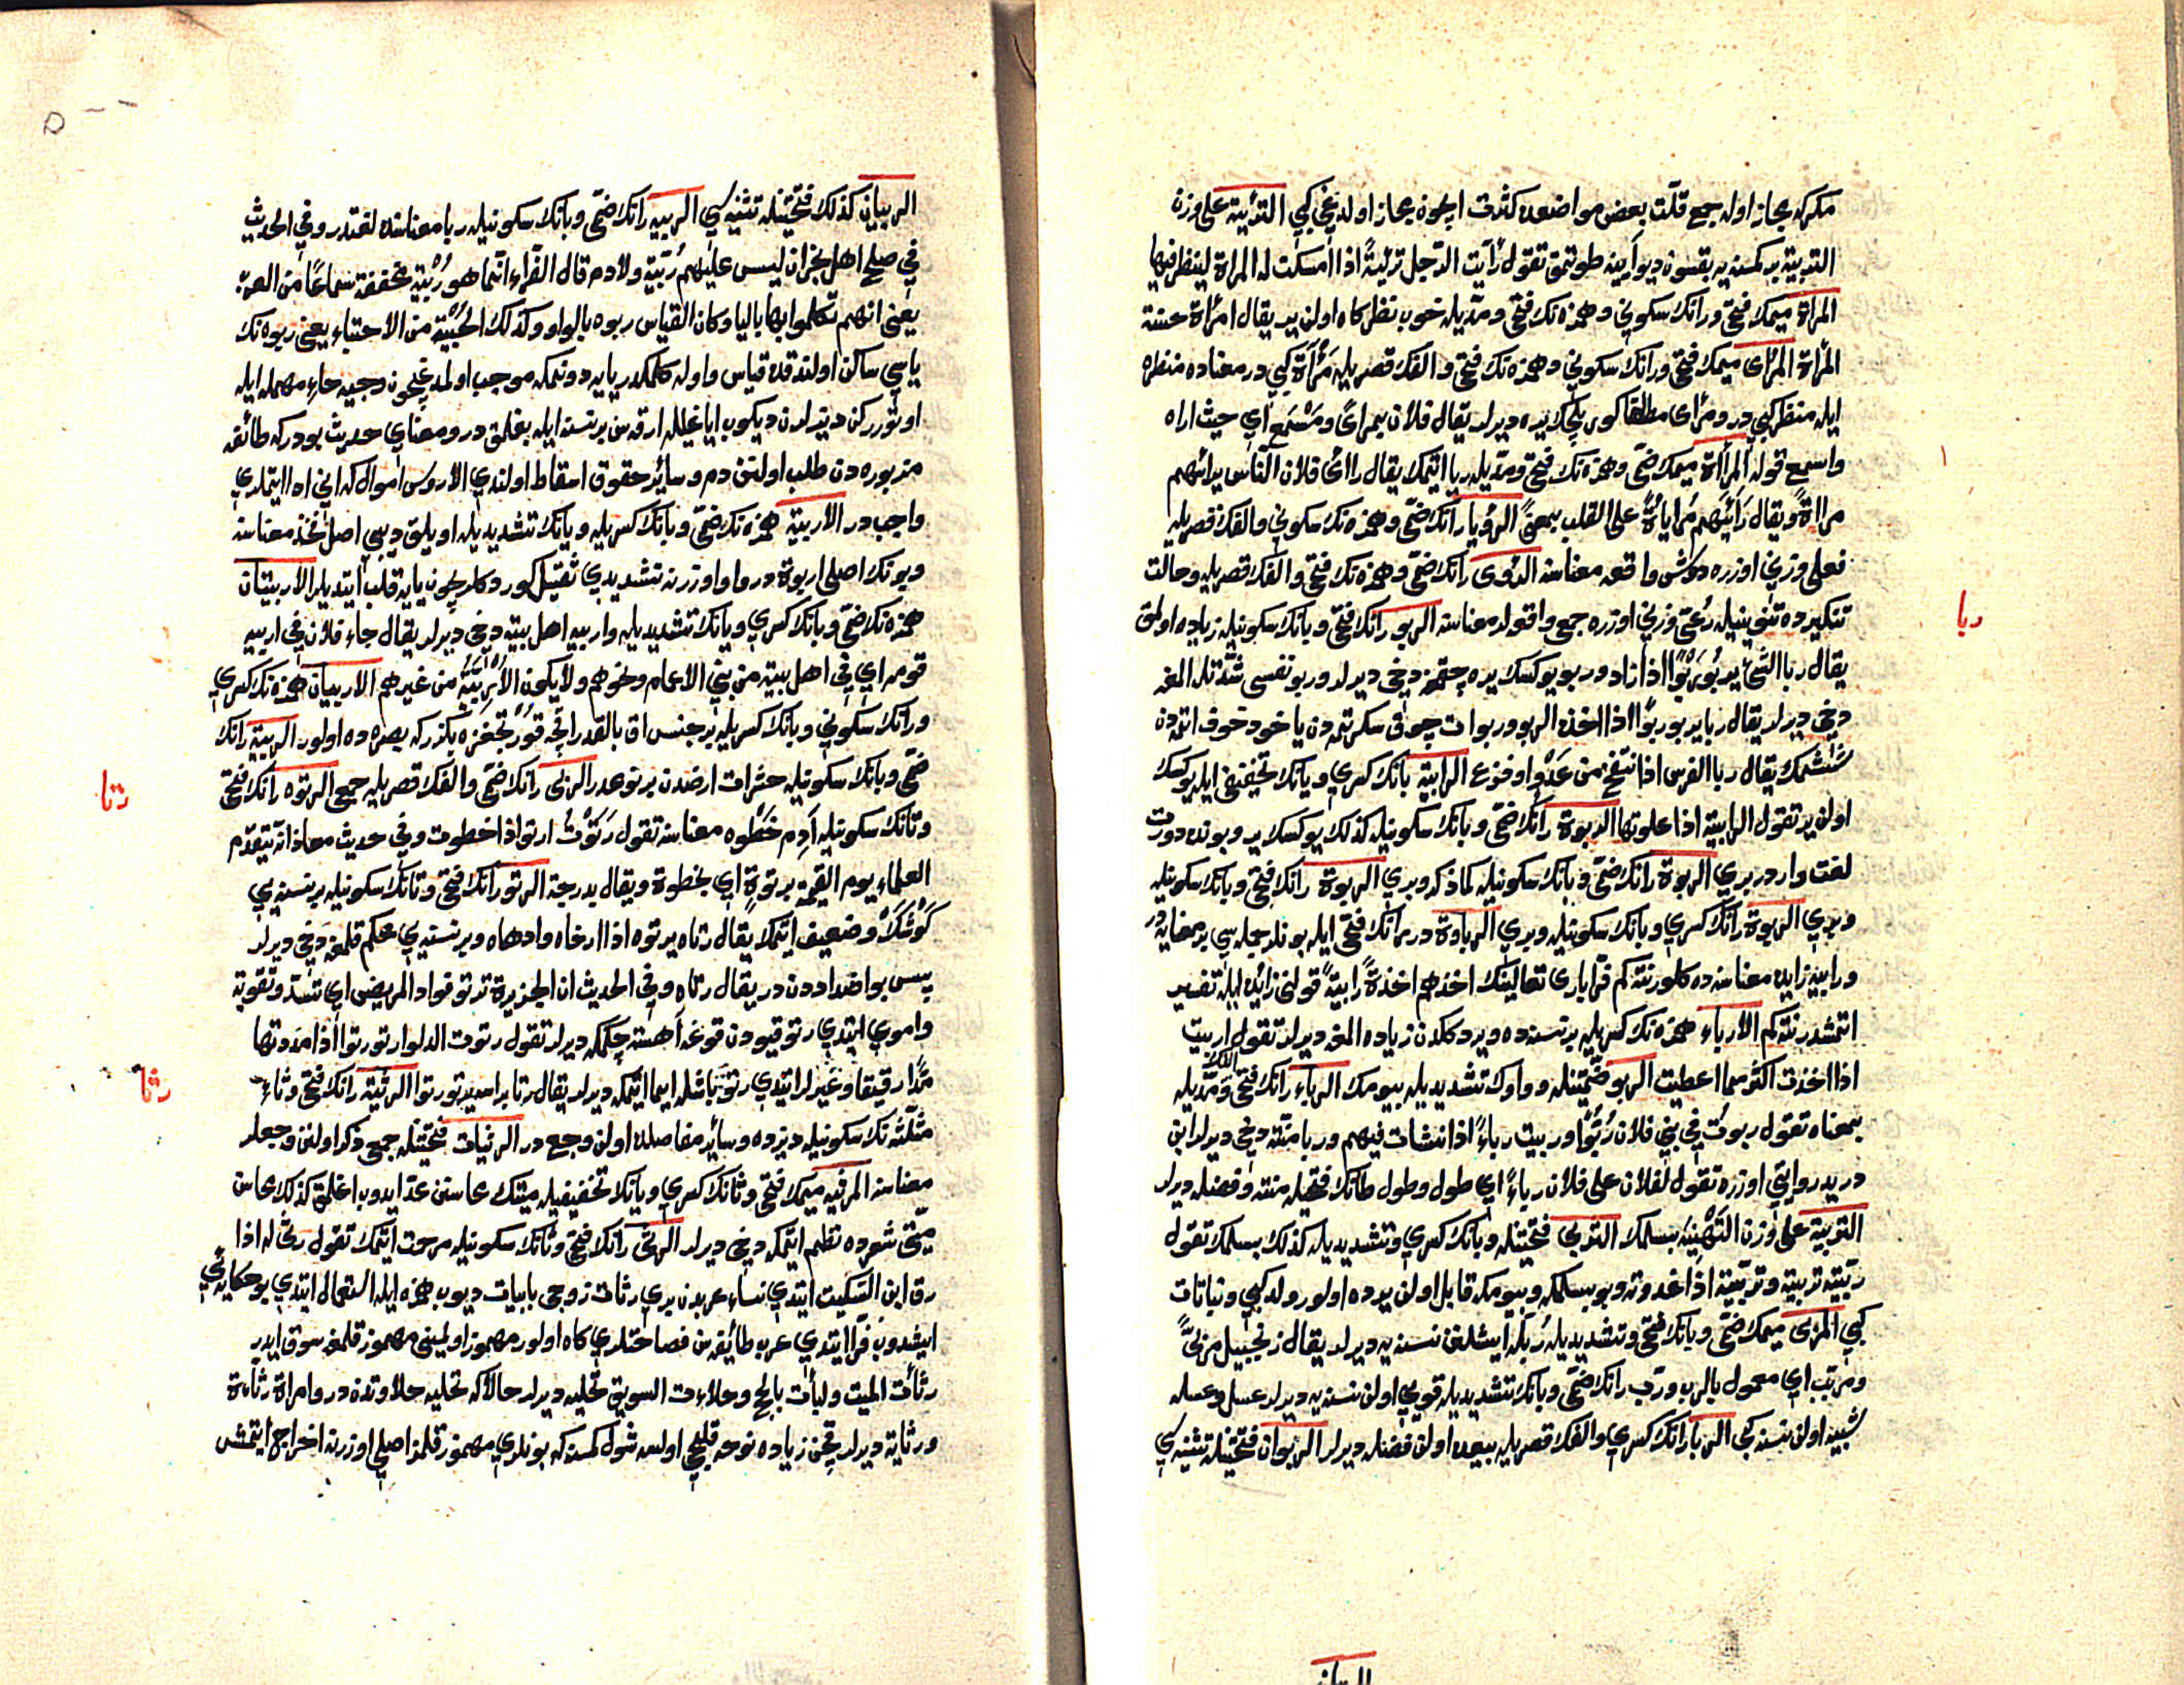 مكركه مجاز اوله جمع قلّت بعض مواضعده كثرت ايچون مجاز اولديغي كبي الترئية على وزن
التربية بر كمسنه يه بقسون ديو آينه طوتمق تقول رأيت الرّجل ترئيةً اذا امسكت له المرآة لينظر فيها
المرآة ميمك فتحي ورانك سكوني وهمزه نك فتحي ومدّيله خوب نظركاه اولن يير يقال امرأة حسنة
المرآة المرأى ميمك فتحي ورانك سكوني وهمزه نك فتحي والفك قصريله مَرْآة كبي در معناده منظره
ايله منظر كبي در ومرأى مطلقا كورىلجك يره ديرلر يقال فلان بمرأى ومَسْمَع اي حيث اراه
واسمع قوله المرأاة ميمك ضمّي وهمزه نك فتحي ومدّيله ريا ايتمك يقال راأى فلان النّاس يرائيهم
مرااةً ويقال رَايَيْهم مُراياةً على القلب بمعنىً الرؤيا رانك ضمّي وهمزه نك سكوني والفك قصريله
فعلى وزني اوزره دوش واقعه معناسنه الرؤى رانك ضمّي وهمزه نك فتحي والفك قصريله وحالت
تنكيرده تنوينيله رُعىً وزني اوزره جمع واقع اولر معناسنه الربو رانك فتحي وبانك سكونيله زياده اولمق
يقال ربا الشّئ يربو رَبْوًا اذا زاد وربو يوكسك يره چقمغه دخي ديرلر وربو نفسى شدّتله المغه
دخي ديرلر يقال ربا يربو ربوًا اذا اخذه الربو وربو ات چوق سكرتمه دن ياخود خوف اتمه دن
شيشمك يقال ربا الفرس اذا انتفخ من عَدْوٍ او فزع الرابية بانك كسري ويانك تخفيفى ايله يوكسك
اولن ير تقول الرابية اذا علوتها الربوة رانك ضمّي وبانك سكونيله كذلك يوكسك ير وبونده دورت
لغت واردر بري الربوة رانك ضمّي وبانك سكونيله كما ذكر وبري الربوة رانك فتحي وبانك سكونيله
وبري الربوة رانك كسري وبانك سكونيله وبري الرباوة در رانك فتحي ايله بونلر جمله سي بر معنايه در
ورابيه زايده معناسنه ده كلور نته كم فرّا باري تعالينك اخذهم اخذةً رابيةً قولنى زائده ايله تفسير
اتمشدر نته كم الأرباء همزه نك كسريله بر نسنه ده ويردكلردن زياده المغه ديرلر تقول اربيت
اذا اخذت اكثر مما اعطيت الربو ضمّتينله وواوك تشديديله بيومك الرباء رانك فتحي الفك ومدّيله
بمعناه تقول ربوت في بني فلان رُبُوًّا وربيت رباءً اذا نشات فيهم وربا منّته دخي ديرلر ابن
دريد روايتي اوزره تقول لفلان على فلان رباءً اي طول وطول طانك فتحيله منّته وفضله ديرلر
التربية على وزن التَهْنِيَة بسلمك التربي فتحتينله وبانك كسري وتشديديله كذلك بسلمك تقول
ربّيته تربيةً وتربّيته اذا غدوته وبو بسلمكه وبيومكه قابل اولن يرده اولور ولد كبي ونباتات
كبي المربى ميمك ضمّي وبانك فتحي وتشديديله رُبلّه ايشلنن نسنه يه ديرلر يقال زنجبيل مربىً
ومرتب اي معمول بالرب وربّ رانك ضمّي وبانك تشديديله قويى اولن نسنه يه ديرلر عسل وعسله
شبيه اولن نسنه كبى الربا رانك كسري والفك قصريله بيعده اولن فضله ديرلر الربوان فتحتينله تثنيه سي
الربيان كذلك فتحتينله تثنيه سي الربيه رانك ضمّي وبانك سكونيله ربا معناسنه لغتدر وفي الحديث
في صلح اهل نجران ليس عليهم رُبّيّة ولا دم قال الفرّاء انّما هو رُبْية مخففة سماعًا من العرب
يعني انهم تكلموا بها باليا وكان القياس ربوه بالواو وكذلك الحُبْيَة من الاحتباء يعني ربوه نك
ياسي ساكن اولندقده قياس واوله كلمكدر يايه دونمكه موجب اولمديغيچون وحبيه حاء مهمله ايله
اوتورركن ديزلرن ديكوب اياغيله ارقه سن بر نسنه ايله بغلمق در ومعناي حديث بودر كه طائفه
مزبوره دن طلب اولنن دم وسائر حقوق اسقاط اولندي الا رؤس اموال كه اني ادا ايتملري
واجب در الأربية همزه نك ضمّي وبانك كسريله ويانك تشديديله اويلق ديبي اصل فخذ معناسنه
وبونك اصلى اربوة در واو اوزرنه تشديدي ثقيل كوردكلريچون يايه قلب ايتديلر الأربيّتان
همزه نك ضمّي وبانك كسري ويانك تشديديله واربيه اهل بيته دخي ديرلر يقال جاء فلان في اربيه
قومه اي في اهل بيته من بني الاعمام ونحوهم ولا يكون الأُرْبِيَّةُ من غيرهم الاربيان همزه نك كسري
ورانك سكوني وبانك كسريله بر جنس اق بالقدر انجه قورتجغزه بكزر كه بصره ده اولور الربية رانك
ضمّي وبانك سكونيله حشرات ارضدن بر نوعدر الربى رانك ضمّي والفك قصريله جمع الرتوه رانك فتحي
وتانك سكونيله آدم خَطْوه معناسنه تقول رَتَوْتُ ارتو اذا خطوت وفي حديث معاذ انّه يتقدّم
العلماء يوم القيمة برتوةٍ اي بخطوة ويقال بدرجة الرتو رانك فتحي وتانك سكونيله بر نسنه يي
كَوْشَكْ وضعيف ايتمك يقال رتاه يرتوه اذا ارخاه واوهاه وبر نسنه يي محكم قلمغه دخي ديرلر
پس بو اضداددن در يقال رتاه وفي الحديث ان الحزيرة ترتو فؤاد المريض اي تشدّ وتقوّيه
واموي ايتدي رتو قيودن قوغه آهسته چكمكه ديرلر تقول رتوت الدلو ارتو رتوا اذا مددتها
مدًّا رقيقا وغيرلر ايتدي رتو باشله ايما ايتمكه ديرلر يقال رتا براسه يرتو رتوا الرثية رانك فتحي وثاء
مثلثه نك سكونيله ديزده وسائر مفاصلده اولن وجع در الرثيات فتحتينله جمع ذكر اولنن وجعلر
معناسنه المرثيه ميمك فتحي وثانك كسري ويانك تخفيفيله ميتك محاسنن عدّ ايدوب اغلمق كذلك محاسن
ميّتي شعرده نظم ايتمكه دخي ديرلر الرثي رانك فتحي وثانك سكونيله مرحمت ايتمك تقول رثى له اذا
رق ابن السّكّيت ايتدي نساء عربدن بري رثات زوجى بابيات ديوب همزه ايله استعمال ايتدي بو حكايه يي
ايشدوب فرّا ايتدي عرب طائفه سن فصاحتلري كاه اولور مهموز اولمينى مهموز قلمغه سوق ايدر
رثأت الميت ولبأت بالحج وحلاءت السويق تحليه ديرلر حالاكه تحليه حلاوتدن در وامراة رثاءة
ورثاية ديرلر قچن زياده نوحه قلجى اولسه شول كمسنه كه بونلري مهموز قلمز اصلى اوزرنه اخراج ايتمش
ربا
رتا
رثا